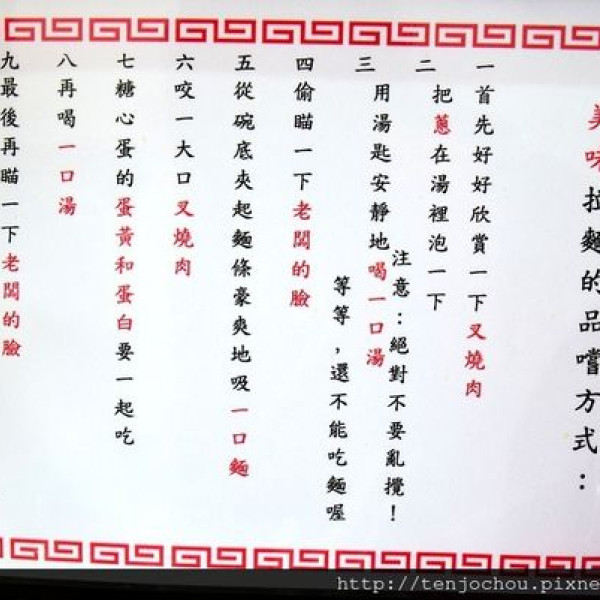 美味拉麵的品嚐方式：
一首先好好欣賞一下叉燒肉
二把蔥在湯裡泡一下
注意：絕對不要亂攪！
三用湯匙安靜地喝一口湯
等等，還不能吃麵喔
四偷瞄一下老闆的臉
五從碗底夾起麵條豪爽地吸一口麵
六咬一大口叉燒肉
七糖心蛋的蛋黃和蛋白要一起吃
八再喝一口湯
九最後再瞄一下老闆的臉
http://tenjochou.pixne